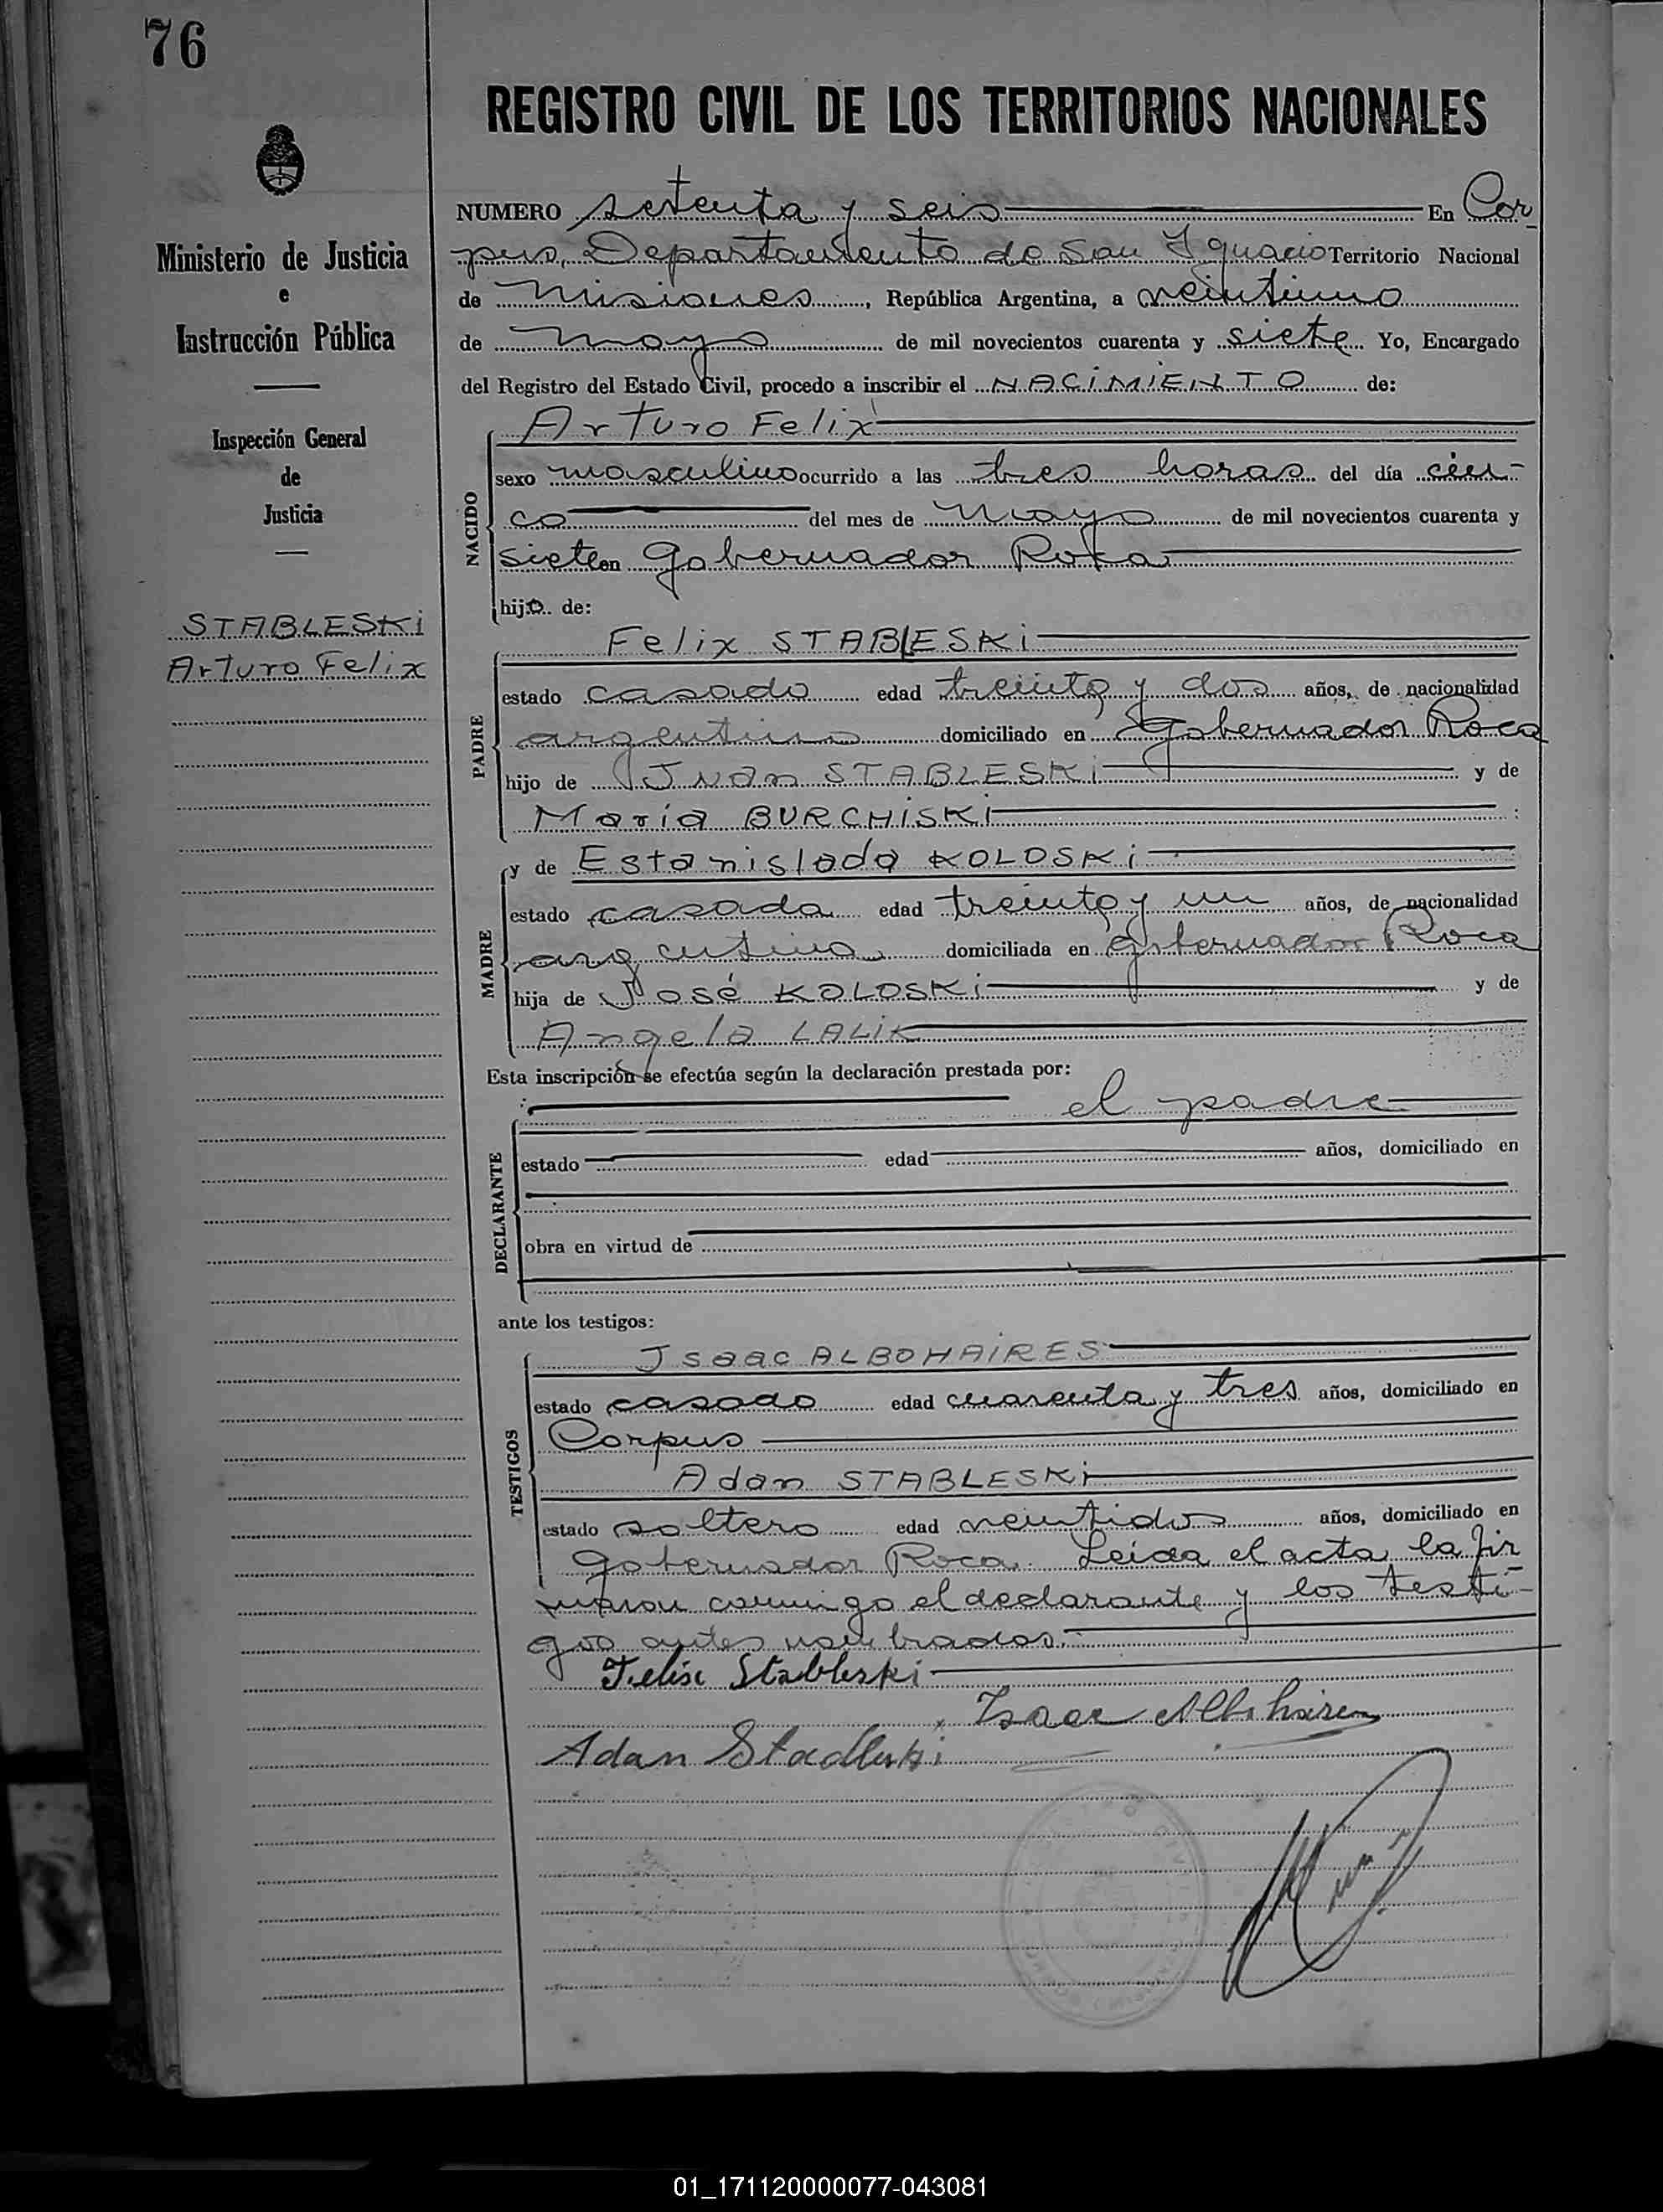 76
REGISTRO CIVIL DE LOS TERRITORIOS NACIONALES
Ministerio de Justicia
e
Instrucción Pública
Inspección General
de
Justicia
STABLESKi
Arturo Felix
NUMERO setenta y seis En Cor-
pus, Departamento de San Ignacio Territorio Nacional
de Misiones, República Argentina, a veintiuno
de mayo de mil novecientos cuarenta y siete Yo, Encargado
del Registro del Estado Civil, procedo a inscribir el NACiMiENTO de:
NACIDO
Arturo Felix
sexo masculino ocurrido a las tres horas del día cin-
co del mes de mayo de mil novecientos cuarenta y
siete en Gobernador Roca
hijo de:
PADRE
Felix STABLESKi
estado casado edad treinta y dos años, de nacionalidad
argentino domiciliado en Gobernador Roca
hijo de Juan STABLESKi y de
María BURCHiSKi
MADRE
y de Estanislada KOLOSKi
estado casada edad treinta y un años, de nacionalidad
argentina domiciliada en Gobernador Roca
hija de José KOLOSKi y de
Angela LALiK
Esta inscripción se efectúa según la declaración prestada por:
DECLARANTE
el padre
estado edad años, domiciliado en
obra en virtud de
ante los testigos:
TESTIGOS
Isaac ALBOHAiRES
estado casado edad cuarenta y tres años, domiciliado en
Corpus
Adan STABLESKi
estado soltero edad veintidos años, domiciliado en
Gobernador Roca. Leida el acta, la fir-
maron conmigo el declarante y los testi-
gos antes nombrados.
Felix Stableski
Isaac Albohaires
Adan Stableski
01_171120000077-043081